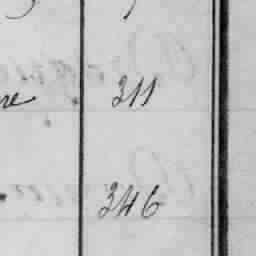 re 311
346